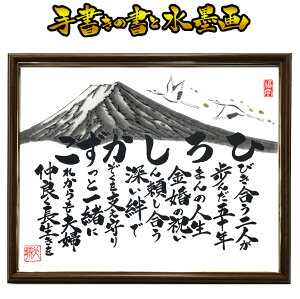 手書きの書と水墨画
ひろしかずこ
びき合う二人が
歩んだ五十年
まんの人生
金婚の祝い
ん頼し合う
深い絆で
支え守り
っと一緒に
れからも夫婦
仲良く長生きを